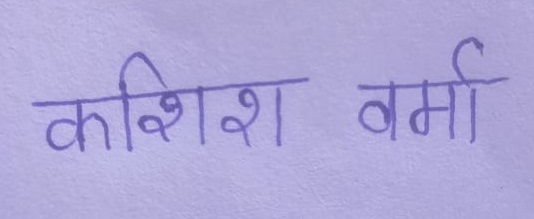 कशिश वर्मा